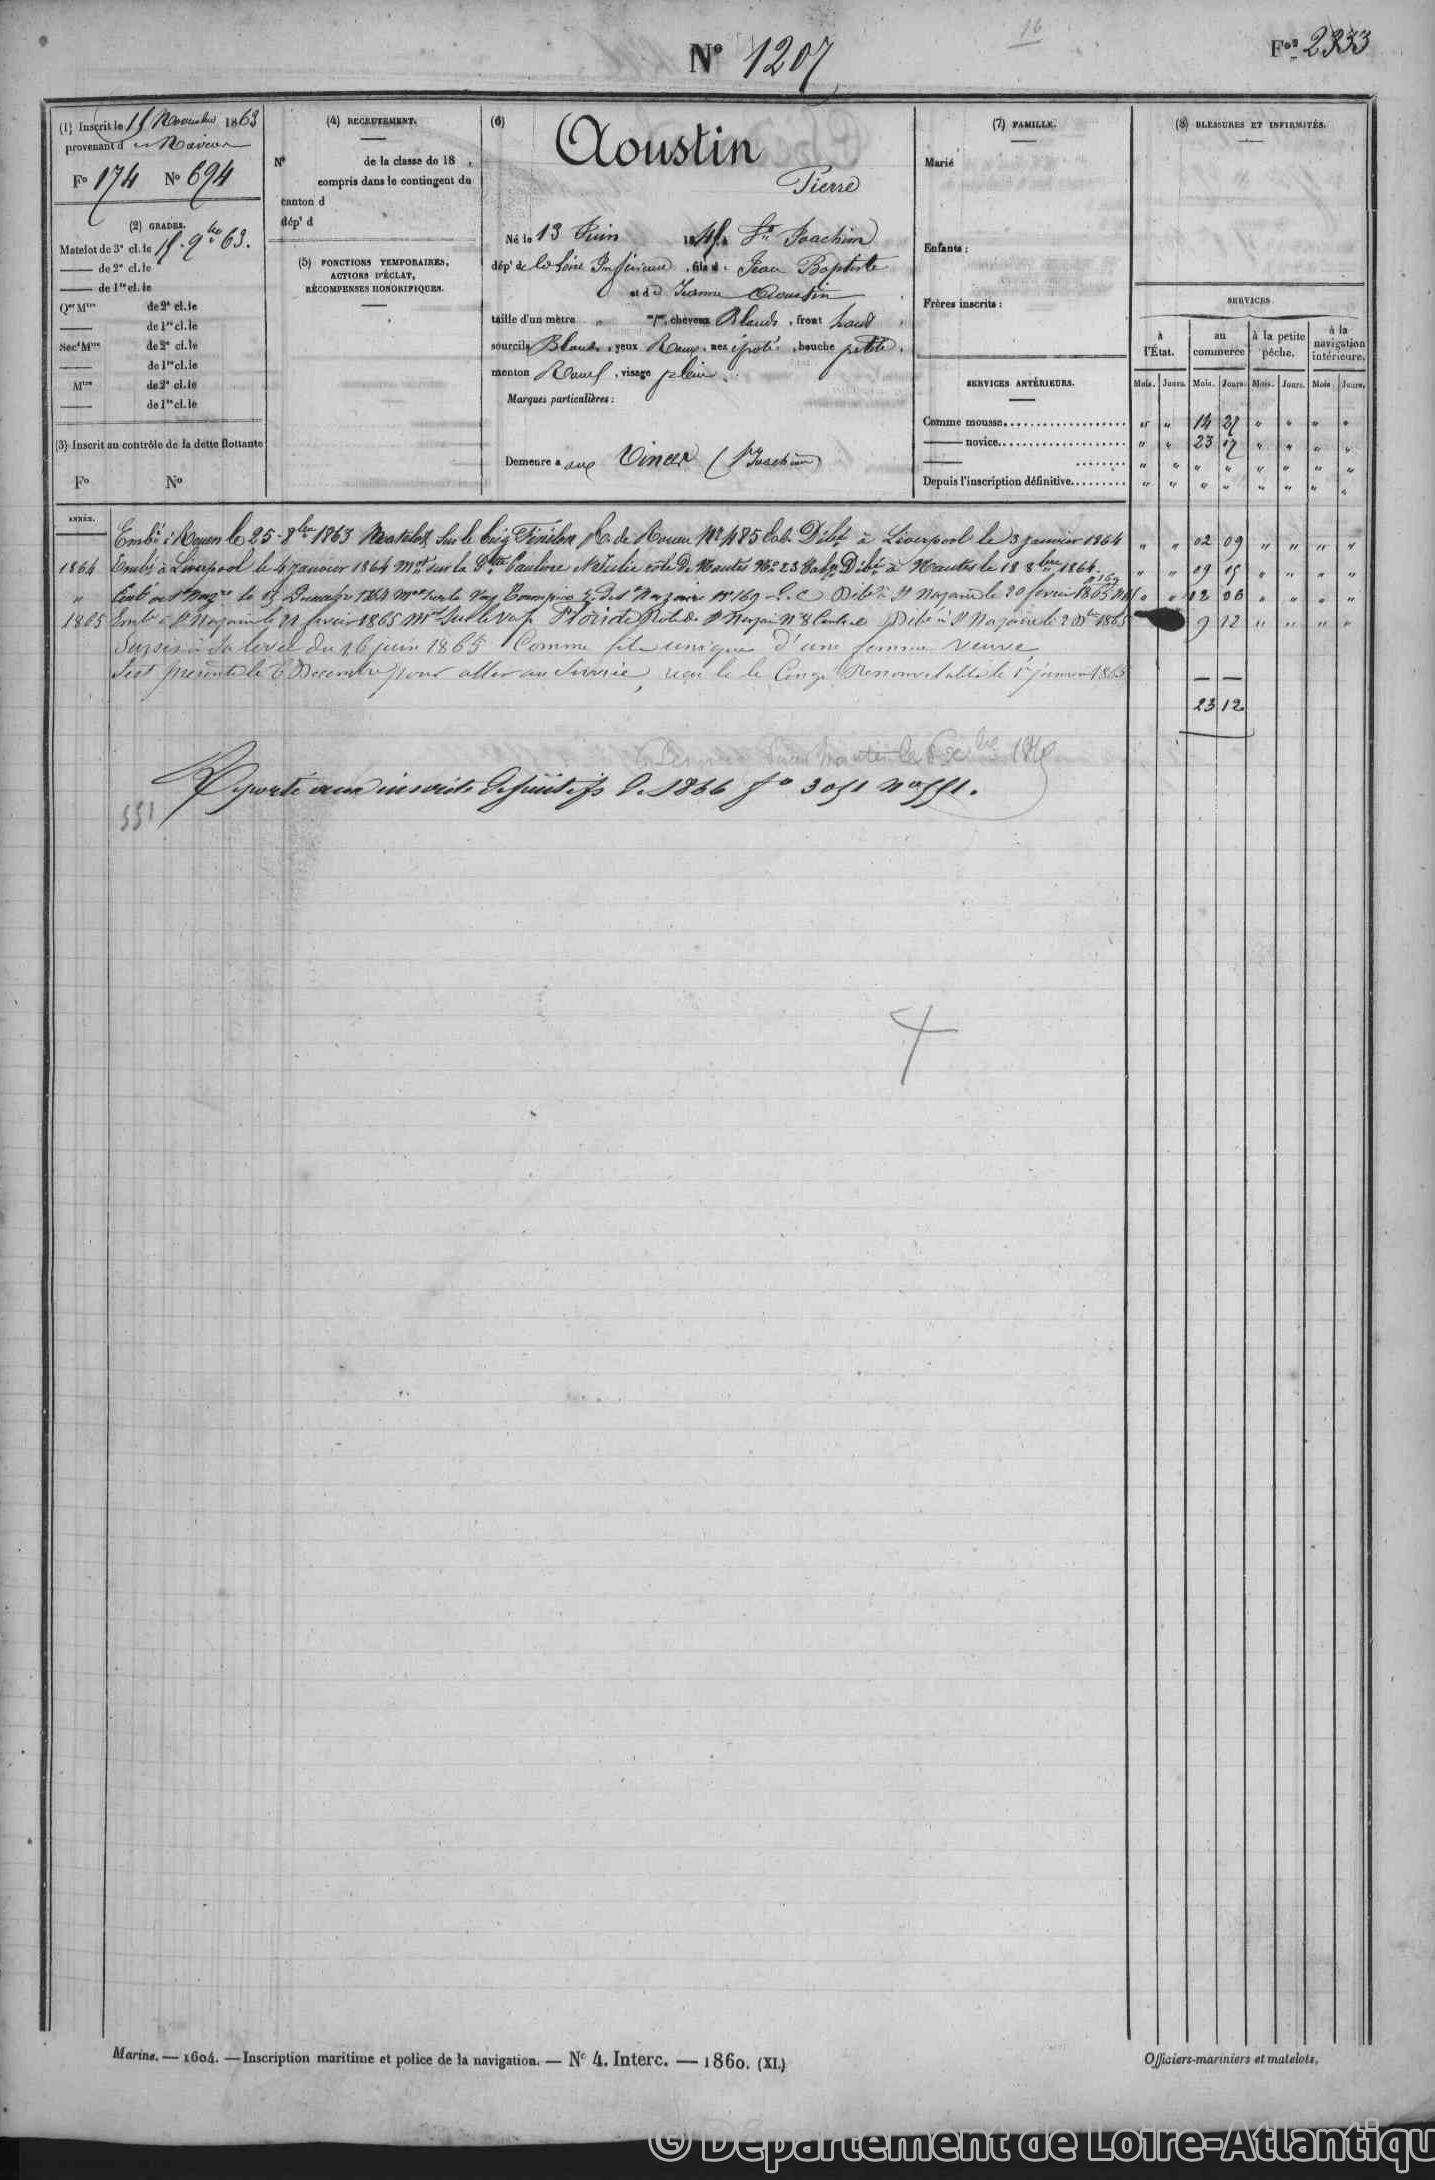 16
N° 1207
Fos 2333
(1) Inscrit le 15 Novembre 1863
provenant des Novices
F° 174 N° 694
(2) GRADES.
Matelot de 3e cl. le 15. 9bre 63.
—— de 2e cl. le
—— de 1re cl. le
Qer Mtre de 2e cl. le
—— de 1re cl. le
Secd Mtre de 2e cl. le
—— de 1re cl. le
Mtre de 2e cl. le
—— de 1re cl. le
(3) Inscrit au contrôle de la dette flottante
F° N°
(4) RECRUTEMENT.
N° de la classe de 18 ,
compris dans le contingent du
canton d
dépt d
(5) FONCTIONS TEMPORAIRES,
ACTIONS D'ÉCLAT,
RÉCOMPENSES HONORIFIQUES.
(6)
Aoustin
Pierre
Né le 13 Juin 1845 à St Joachim
dépt de la Loire Inférieure, fils de Jean Baptiste
et de Jeanne Aoustin
taille d'un mètre " mm, cheveux Blonds, front haut,
sourcils Blonds, yeux Roux, nez épaté, bouche petite,
menton Rond, visage plein.
Marques particulières :
Demeure à aux Vincer (St Joachim)
(7) FAMILLE.
Marié
Enfants :
Frères inscrits :
SERVICES ANTÉRIEURS.
Comme mousse " " 14 27 " " " "
—— novice " " 23 17 " " " "
—— " " " " " " " "
Depuis l'inscription définitive " " " " " " " "
(8) BLESSURES ET INFIRMITÉS.
SERVICES
à l'État. au commerce à la petite pêche. à la navigation intérieure.
Mois. Jours. Mois. Jours. Mois. Jours. Mois. Jours.
ANNÉE.
Embé à Rouen le 25 8bre 1863 Matelot sur le brig Fénélon A. de Rouen N° 485 Cab. Débé à Liverpool le 3 janvier 1864 " " 02 09 " " " "
1864 Embé à Liverpool le 4 janvier 1864 Mot sur la Pauline et Julie de Nantes N° 23 Cabge Débé à Nantes le 18 8bre 1864. " " 09 15 " " " "
" le 15 1864 Mot sur le St Nazaire N° 169 L. C Débé à St Nazaire le 20 fevrier 1865 " " 12 06 " " " "
1865 Embé à St Nazaire le 21 fevrier 1865 Mot sur le vap. Floride de St Nazaire N° 8 Débé à St Nazaire le 2 1865 9 12 " " " "
Sursis à la levée du 16 juin 1865 Comme fils unique d'une femme veuve
S'est présenté le 6 Decembre pour aller au Service, reçu le Congé Renouvelable le 1r janvier 1865
23 12
Reporté aux inscrits définitifs de 1866 f° 3051 n° 551.
551
Marine. — 1604. — Inscription maritime et police de la navigation. — N° 4. Interc. — 1860. (XI.)
Officiers-mariniers et matelots.
© Département de Loire-Atlantiqu